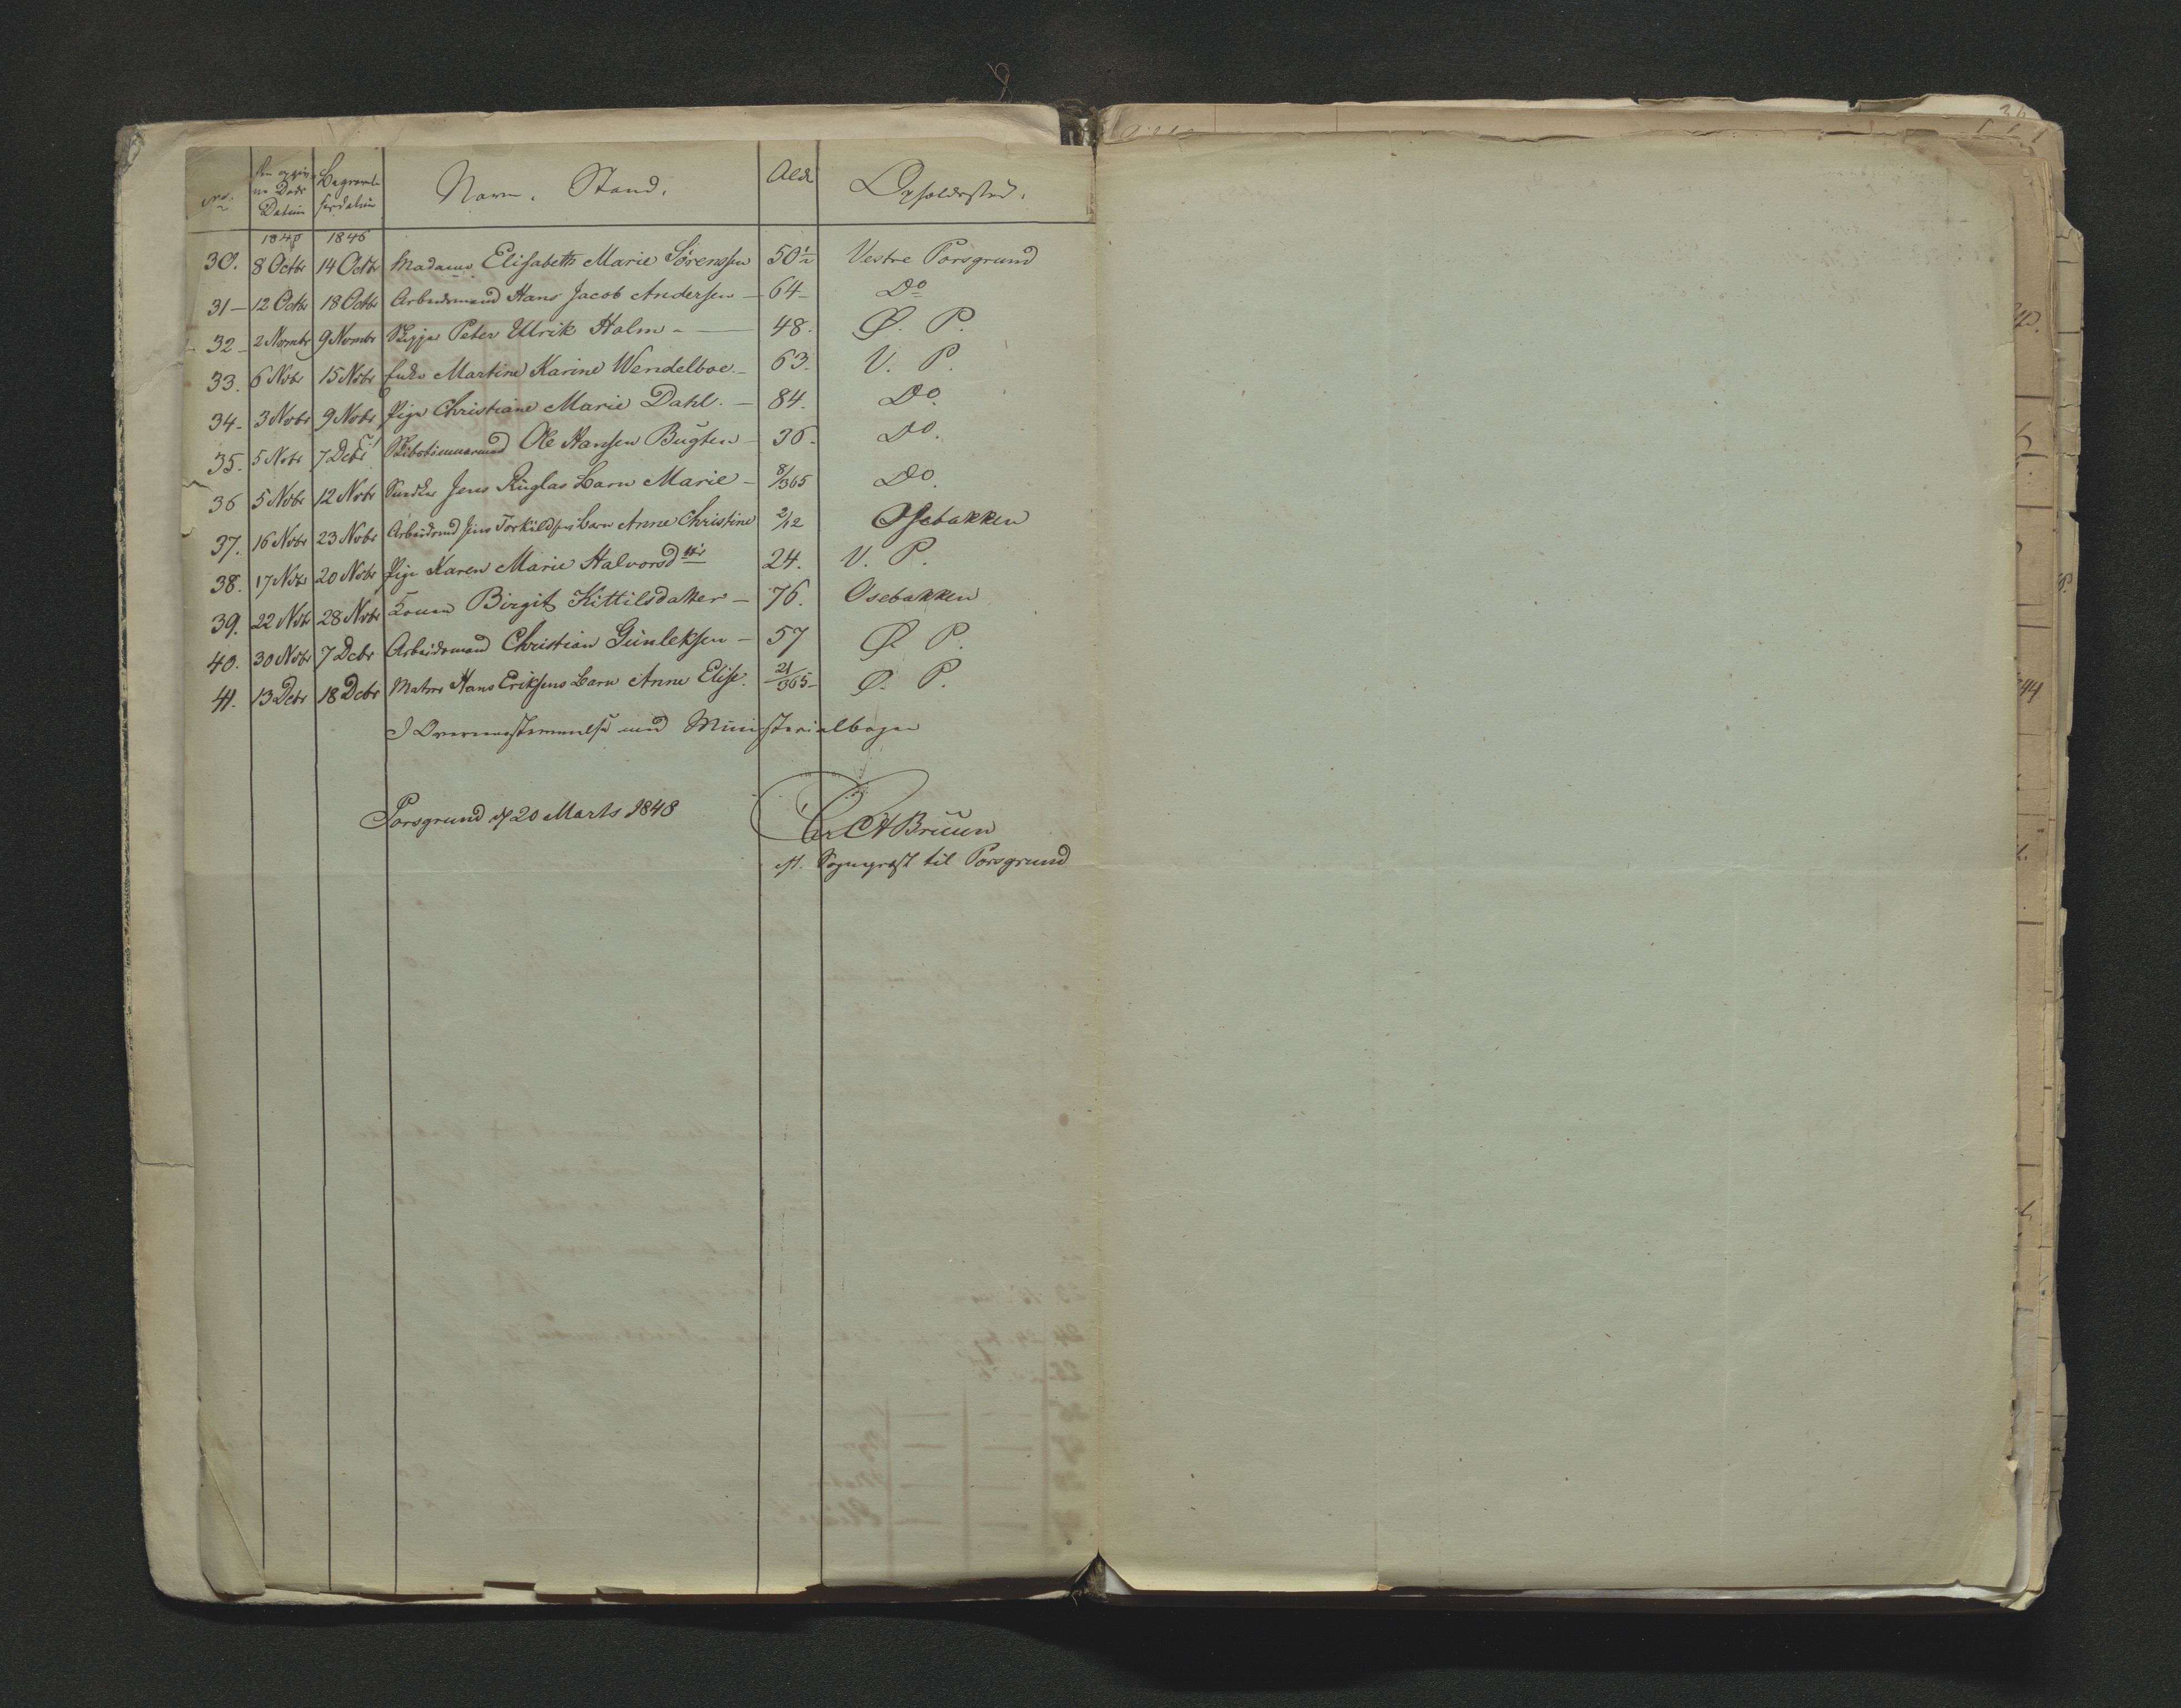 No. Den opgiv- Begravel- Navn. Stand. Alder Opholdssted.
ne Døds sesdatum
Datum
1846 1846
30. 8 Octbr 14 Octbr Madame Elisabeth Marie Sørenssen 50½ Vestre Porsgrund
31 — 12 Octbr 18 Octbr Arbeidsmand Hans Jacob Andersen — 64 — Do
32 — 2 Novmbr 9 Novmbr Skipper Peter Ulrik Holm — 48. Ø. P.
33. 6 Nvbr 15 Nvbr Enke Martine Karine Wendelboe. — 63. V. P.
34 - 3 Nvbr 9 Nvbr Pige Christiane Marie Dahl. — 84. Do.
35. 5 Nvbr 7 Dcbr! Skibstimmermand Ole Hansen Bugten — 36 - Do.
36 5 Nvbr 12 Nvbr Jens Kuglas Barn Marie — 8/365 Do.
37. 16 Nvbr 23 Nvbr Arbeidsmd Jens Torkildsens Barn Anne Christine 2/12 Osebakken
38. 17 Nvbr 20 Nvbr Pige Karen Marie Halvorsdtr 24. V. P.
39. 22 Nvbr 28 Nvbr Konen Birgit Kittilsdatter — 76. Osebakken
40. 30 Nvbr 7 Dcbr Arbeidsmand Christian Gunleksen — 57 Ø. P.
41. 13 Dcbr 18 Dcbr Matros Hans Eriksens Barn Anne Elise. 21/365 - Ø. P.
I Overeensstemmelse med Ministerialbogen
Porsgrund d 20 Marts 1848 CA Bruun
est. Sognepræst til Porsgrund